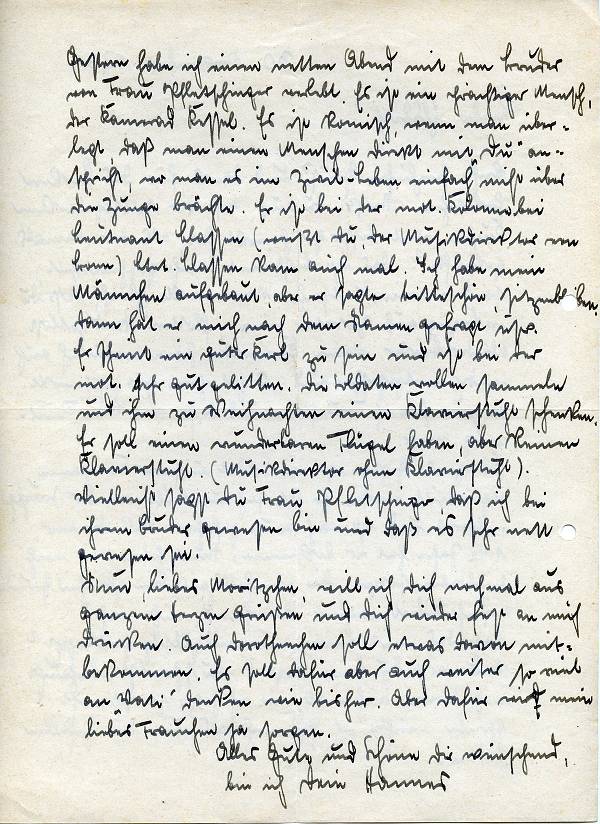 Gestern habe ich einen netten Abend mit dem Bruder
von Frau Pfletschinger verlebt. Es ist ein prächtiger Mensch,
der Kamerad Kessel. Es ist komisch, wenn man über-
legt, daß man einen Menschen direkt mit "Du" an-
spricht, wo man es im Zivil-Leben einfach nicht über
die Zunge brächte. Er ist bei der mot. Kolonne bei
Leutnant Classen (weißt Du, der Musikdirektor von
Bonn) Ltnt. Classen kam auch mal. Ich habe mein
Männchen aufgebaut, aber er sagte bitteschön, sitzenbleiben.
Dann hat er mich nach dem Namen gefragt usw.
Er scheint ein guter Kerl zu sein und ist bei der
mot. sehr gut gelitten. Die Soldaten wollen sammeln
und ihm zu Weihnachten einen Klavierstuhl schenken.
Er soll einen wunderbaren Flügel haben, aber keinen
Klavierstuhl. (Musikdirektor ohne Klavierstuhl).
Vielleicht sagst Du Frau Pfletschinger, daß ich bei
ihrem Bruder gewesen bin und daß es sehr nett
gewesen sei.
Nun, liebes Moritzchen, will ich Dich nochmal aus
ganzem Herzen grüßen und Dich wieder fest an mich
drücken. Auch Dorotheechen soll etwas davon mit-
bekommen. Es soll dafür aber auch weiter so viel
an "Vati" denken wie bisher. Aber dafür wird mein
liebes Frauchen ja sorgen.
Alles Gute und Schöne Dir wünschend,
bin ich Dein Hannes